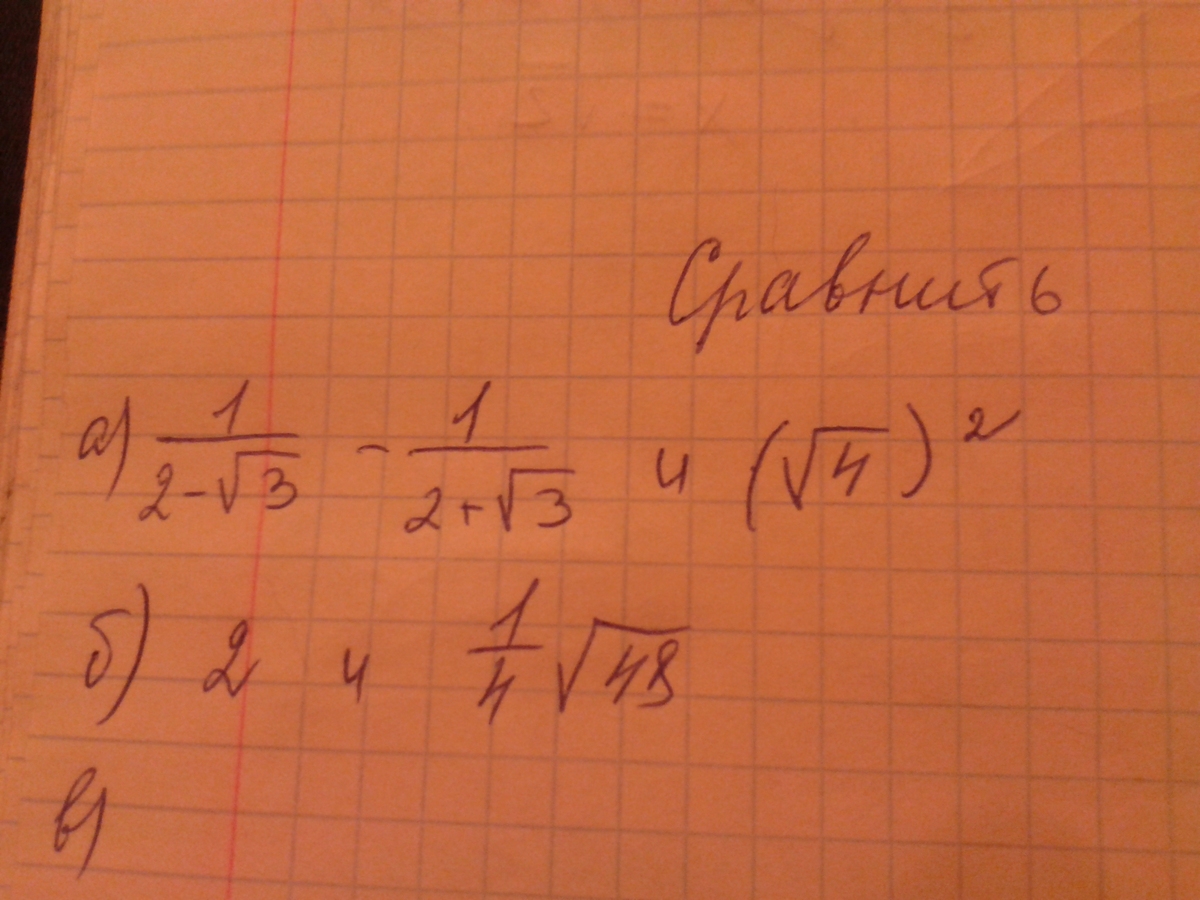 Сравнить
а) 1/(2-√3) - 1/(2+√3) и (√4)²
б) 2 и 1/4 √48
в)